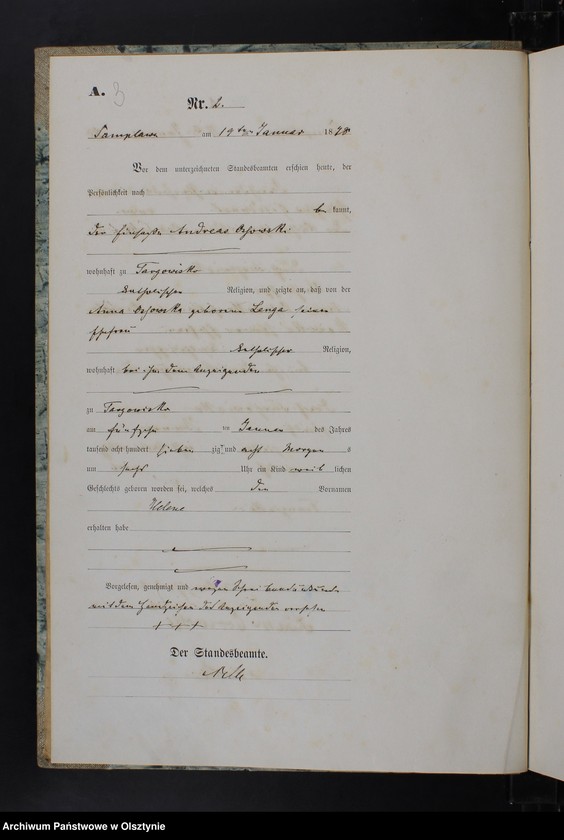 A. 3
Nr. 2.
Samplawa am 19ten Januar 1878
Vor dem unterzeichneten Standesbeamten erschien heute, der
Persönlichkeit nach
be kannt,
der Einsasse Andreas Ossowski
wohnhaft zu Targowisko
katholischer Religion, und zeigte an, daß von der
Anna Ossowska geborene Lenga, seiner
Ehefrau
katholischer Religion,
wohnhaft bei ihm dem Anzeigenden
zu Targowisko
am fünfzehn ten Januar des Jahres
tausend acht hundert sieben zig und acht Morgen s
um sechs Uhr ein Kind weib lichen
Geschlechts geboren worden sei, welches den Vornamen
Helene
erhalten habe
Vorgelesen, genehmigt und wegen Schreibensunkunde
mit dem Handzeichen des Anzeigenden versehen
+++
Der Standesbeamte.
Archiwum Państwowe w Olsztynie